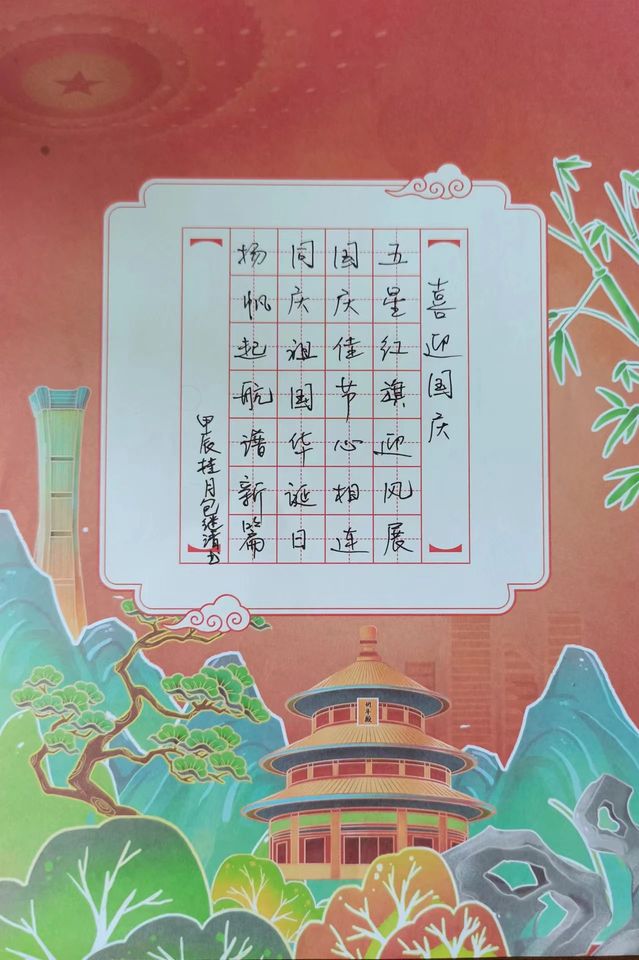 喜迎国庆
五星红旗迎风展
国庆佳节心相连
同庆祖国华诞日
扬帆起航谱新篇
甲辰桂月包继清书